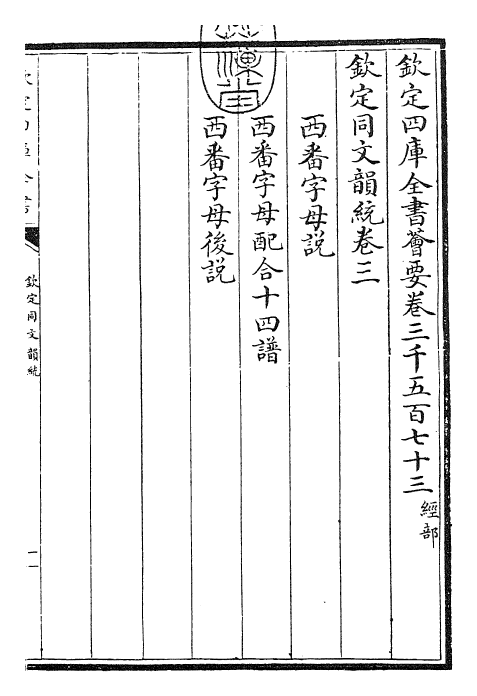 欽定四庫全書薈要卷三千五百七十三 經部
欽定同文韻統卷三
西番字母説
西番字母配合十四譜
西番字母後説
欽定同文韻統
一